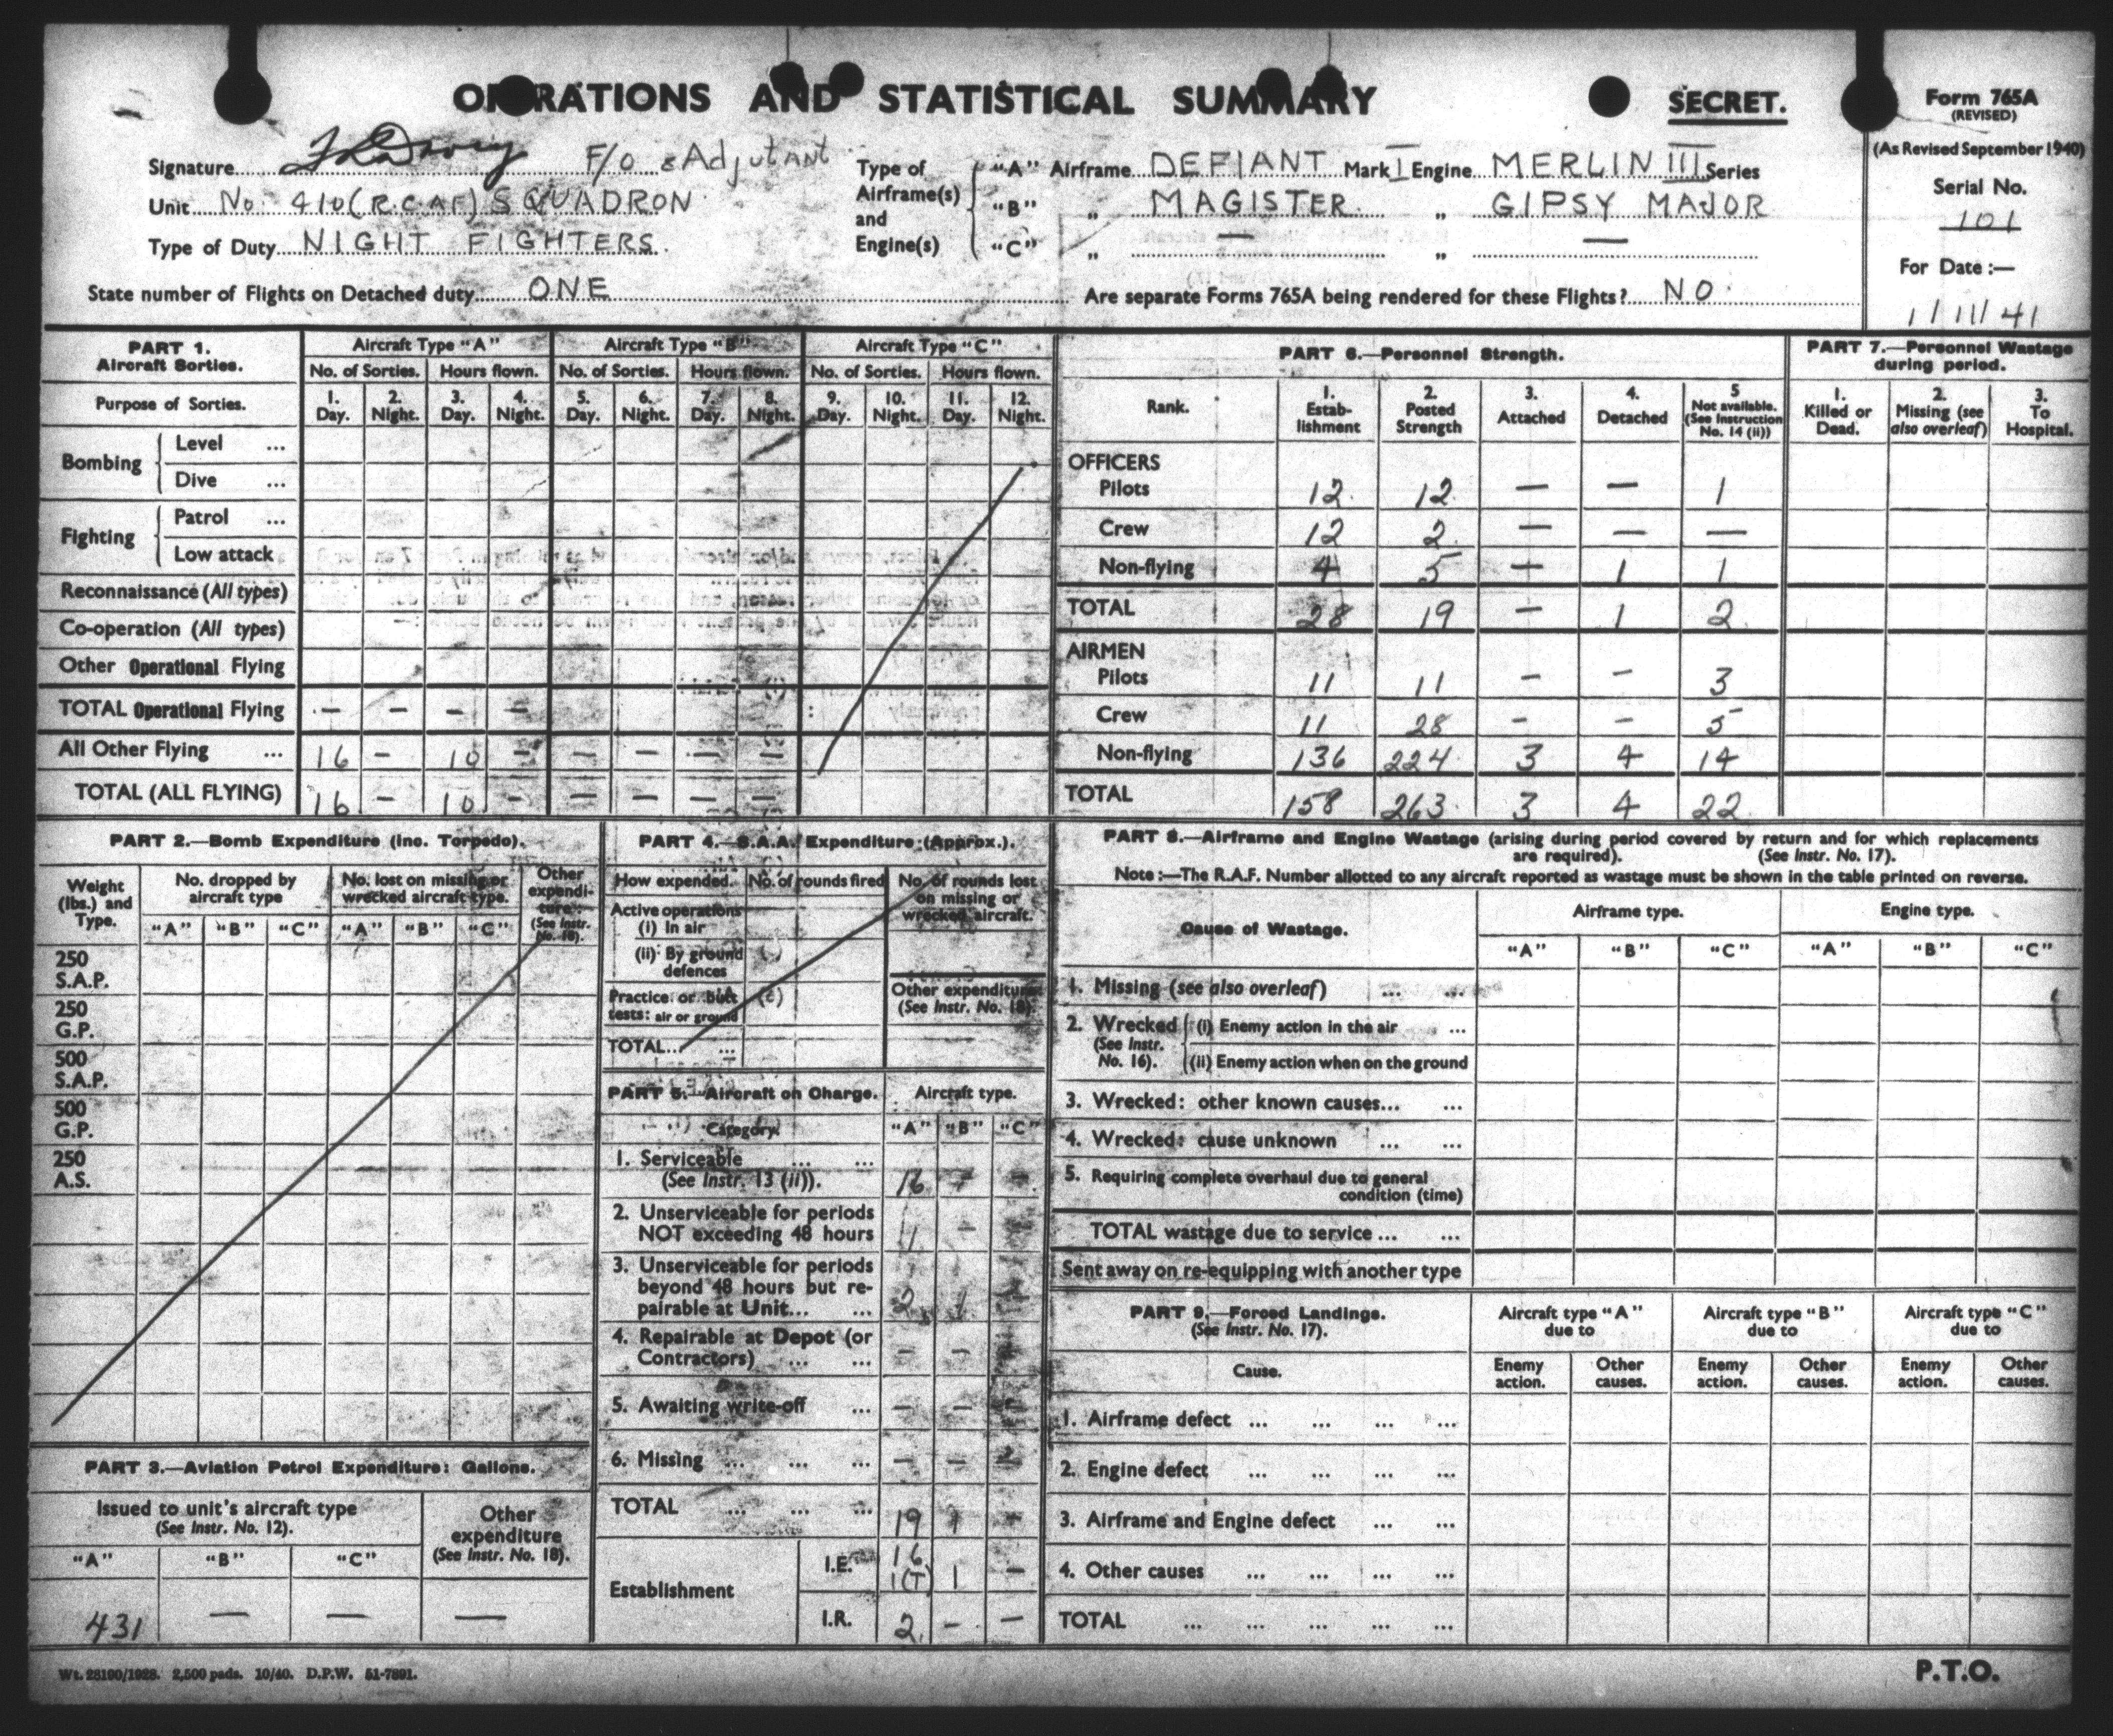 OPERATIONS AND STATISTICAL SUMMARY
SECRET.
Form 765A
(REVISED)
(As Revised September 1940)
Serial No.
101
For Date :—
1/11/41
Signature F/O & Adjutant
Unit No. 410 (R.C.A.F) SQUADRON
Type of Duty NIGHT FIGHTERS.
Type of Airframe(s) and Engine(s)
"A" Airframe DEFIANT Mark I Engine MERLIN III Series
"B" " MAGISTER " GIPSY MAJOR
"C" " — " —
State number of Flights on Detached duty ONE
Are separate Forms 765A being rendered for these Flights? NO.
PART 1.
Aircraft Sorties.
Aircraft Type "A" Aircraft Type "B" Aircraft Type "C"
No. of Sorties. Hours flown. No. of Sorties. Hours flown. No. of Sorties. Hours flown.
Purpose of Sorties.
1. Day. 2. Night. 3. Day. 4. Night. 5. Day. 6. Night. 7. Day. 8. Night. 9. Day. 10. Night. 11. Day. 12. Night.
Bombing
Level ...
Dive ...
Fighting
Patrol ...
Low attack
Reconnaissance (All types)
Co-operation (All types)
Other Operational Flying
TOTAL Operational Flying — — — —
All Other Flying ... 16 — 10 — — — — —
TOTAL (ALL FLYING) 16 — 10 — — — — —
PART 6.—Personnel Strength.
Rank.
1. Estab-lishment
2. Posted Strength
3. Attached
4. Detached
5 Not available. (See Instruction No. 14 (ii))
OFFICERS
Pilots 12 12 — — 1
Crew 12 2 — — —
Non-flying 4 5 — 1 1
TOTAL 28 19 — 1 2
AIRMEN
Pilots 11 11 — — 3
Crew 11 28 — — 5
Non-flying 136 224 3 4 14
TOTAL 158 263 3 4 22
PART 7.—Personnel Wastage during period.
1. Killed or Dead.
2. Missing (see also overleaf)
3. To Hospital.
PART 2.—Bomb Expenditure (Inc. Torpedo).
Weight (lbs.) and Type.
No. dropped by aircraft type
No. lost on missing or wrecked aircraft type.
Other expendi-ture: (See Instr. No. 18).
"A" "B" "C" "A" "B" "C"
250 S.A.P.
250 G.P.
500 S.A.P.
500 G.P.
250 A.S.
PART 3.—Aviation Petrol Expenditure: Gallons.
Issued to unit's aircraft type
(See Instr. No. 12).
Other expenditure
(See Instr. No. 18).
"A" "B" "C"
431 — — —
PART 4.—S.A.A. Expenditure (Approx.).
How expended. No. of rounds fired No. of rounds lost on missing or wrecked aircraft.
Active operations
(i) In air
(ii) By ground defences
Practice or butt tests: air or ground
Other expenditure (See Instr. No. 18).
TOTAL... ...
PART 5.—Aircraft on Charge. Aircraft type.
Category. "A" "B" "C"
1. Serviceable ... ...
(See Instr. 13 (ii)). 16 — —
2. Unserviceable for periods
NOT exceeding 48 hours 1 —
3. Unserviceable for periods
beyond 48 hours but re-
pairable at Unit... ... 2 1 —
4. Repairable at Depot (or
Contractors) ... ... — —
5. Awaiting write-off ... — — —
6. Missing ... ... ... — —
TOTAL ... ... ... 19 1 —
Establishment
I.E. 16 1(T) 1 —
I.R. 2 — —
PART 8.—Airframe and Engine Wastage (arising during period covered by return and for which replacements
are required). (See Instr. No. 17).
Note:—The R.A.F. Number allotted to any aircraft reported as wastage must be shown in the table printed on reverse.
Cause of Wastage. Airframe type. Engine type.
"A" "B" "C" "A" "B" "C"
1. Missing (see also overleaf) ... ...
2. Wrecked (See Instr. No. 16).
(i) Enemy action in the air ...
(ii) Enemy action when on the ground
3. Wrecked: other known causes... ...
4. Wrecked: cause unknown ... ...
5. Requiring complete overhaul due to general
condition (time)
TOTAL wastage due to service ... ...
Sent away on re-equipping with another type
PART 9.—Forced Landings.
(See Instr. No. 17).
Aircraft type "A" due to Aircraft type "B" due to Aircraft type "C" due to
Cause. Enemy action. Other causes. Enemy action. Other causes. Enemy action. Other causes.
1. Airframe defect ... ... ... ...
2. Engine defect ... ... ... ...
3. Airframe and Engine defect ... ...
4. Other causes ... ... ... ...
TOTAL ... ... ... ... ...
Wt. 28190/1928. 2,500 pads. 10/40. D.P.W. 51-7891.
P.T.O.